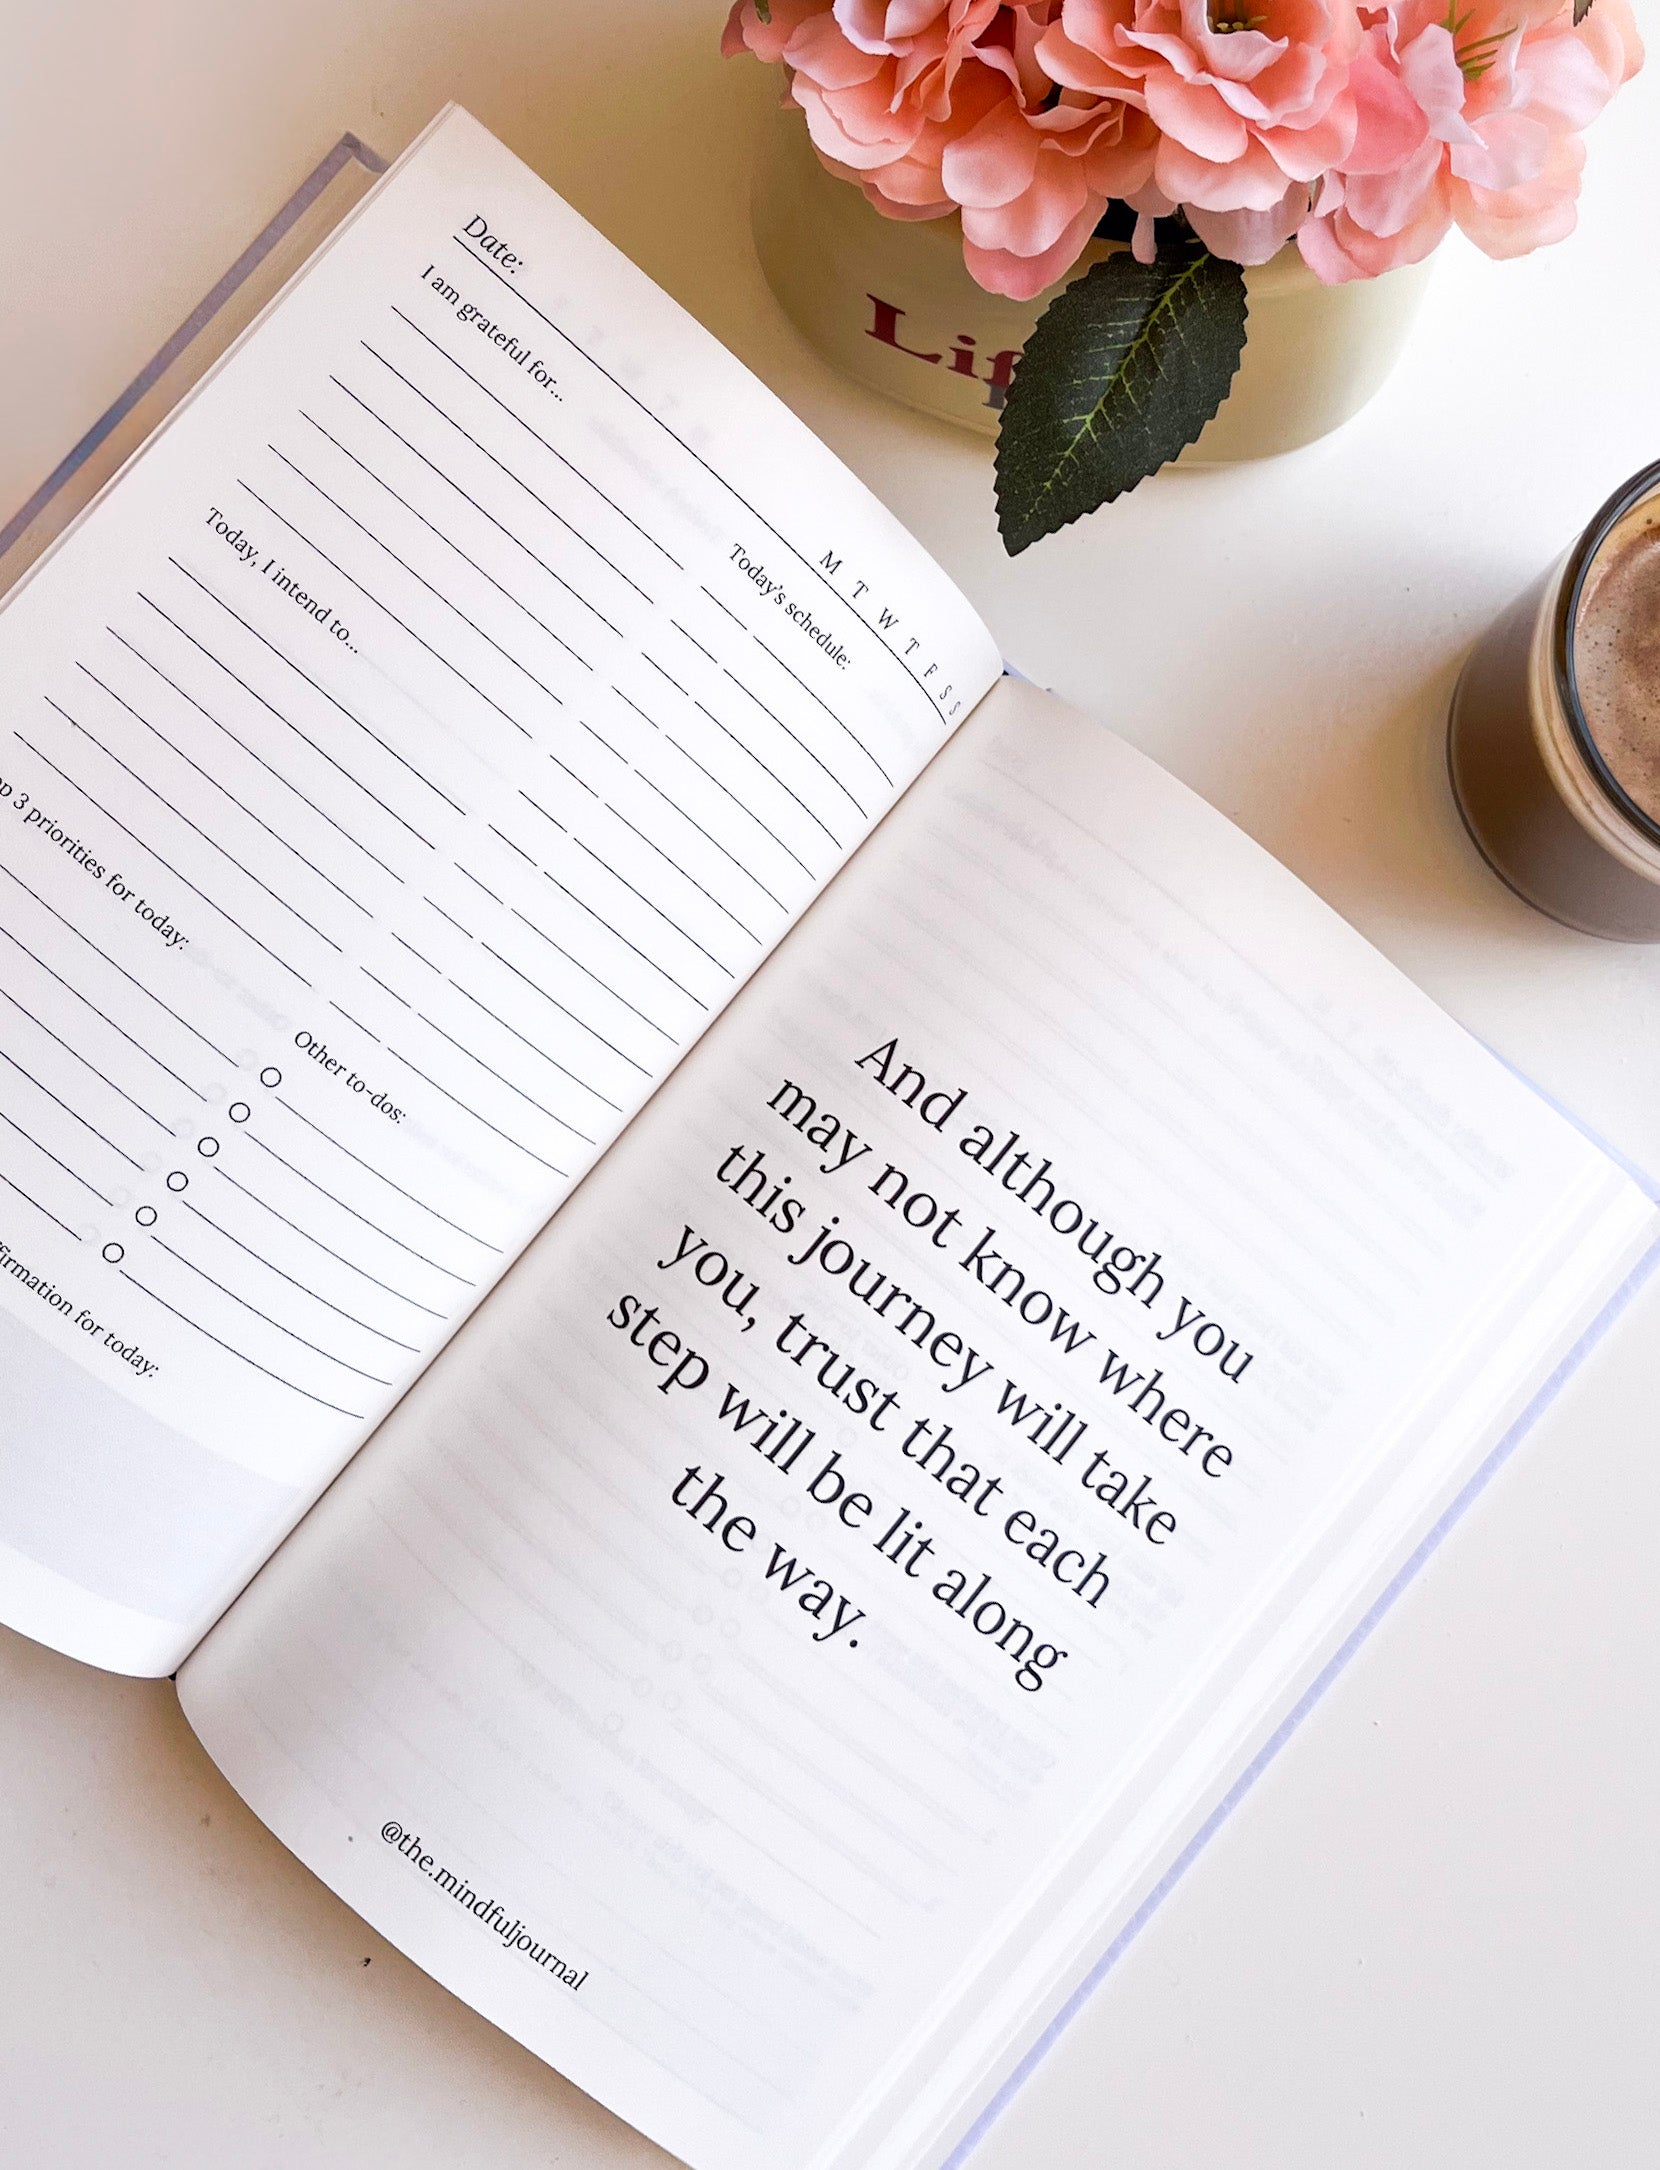 Date:
M T W T F S S
I am grateful for...
Today's schedule:
Today, I intend to...
3 priorities for today:
Other to-dos:
for today:
And although you
may not know where
this journey will take
you, trust that each
step will be lit along
the way.
@the.mindfuljournal